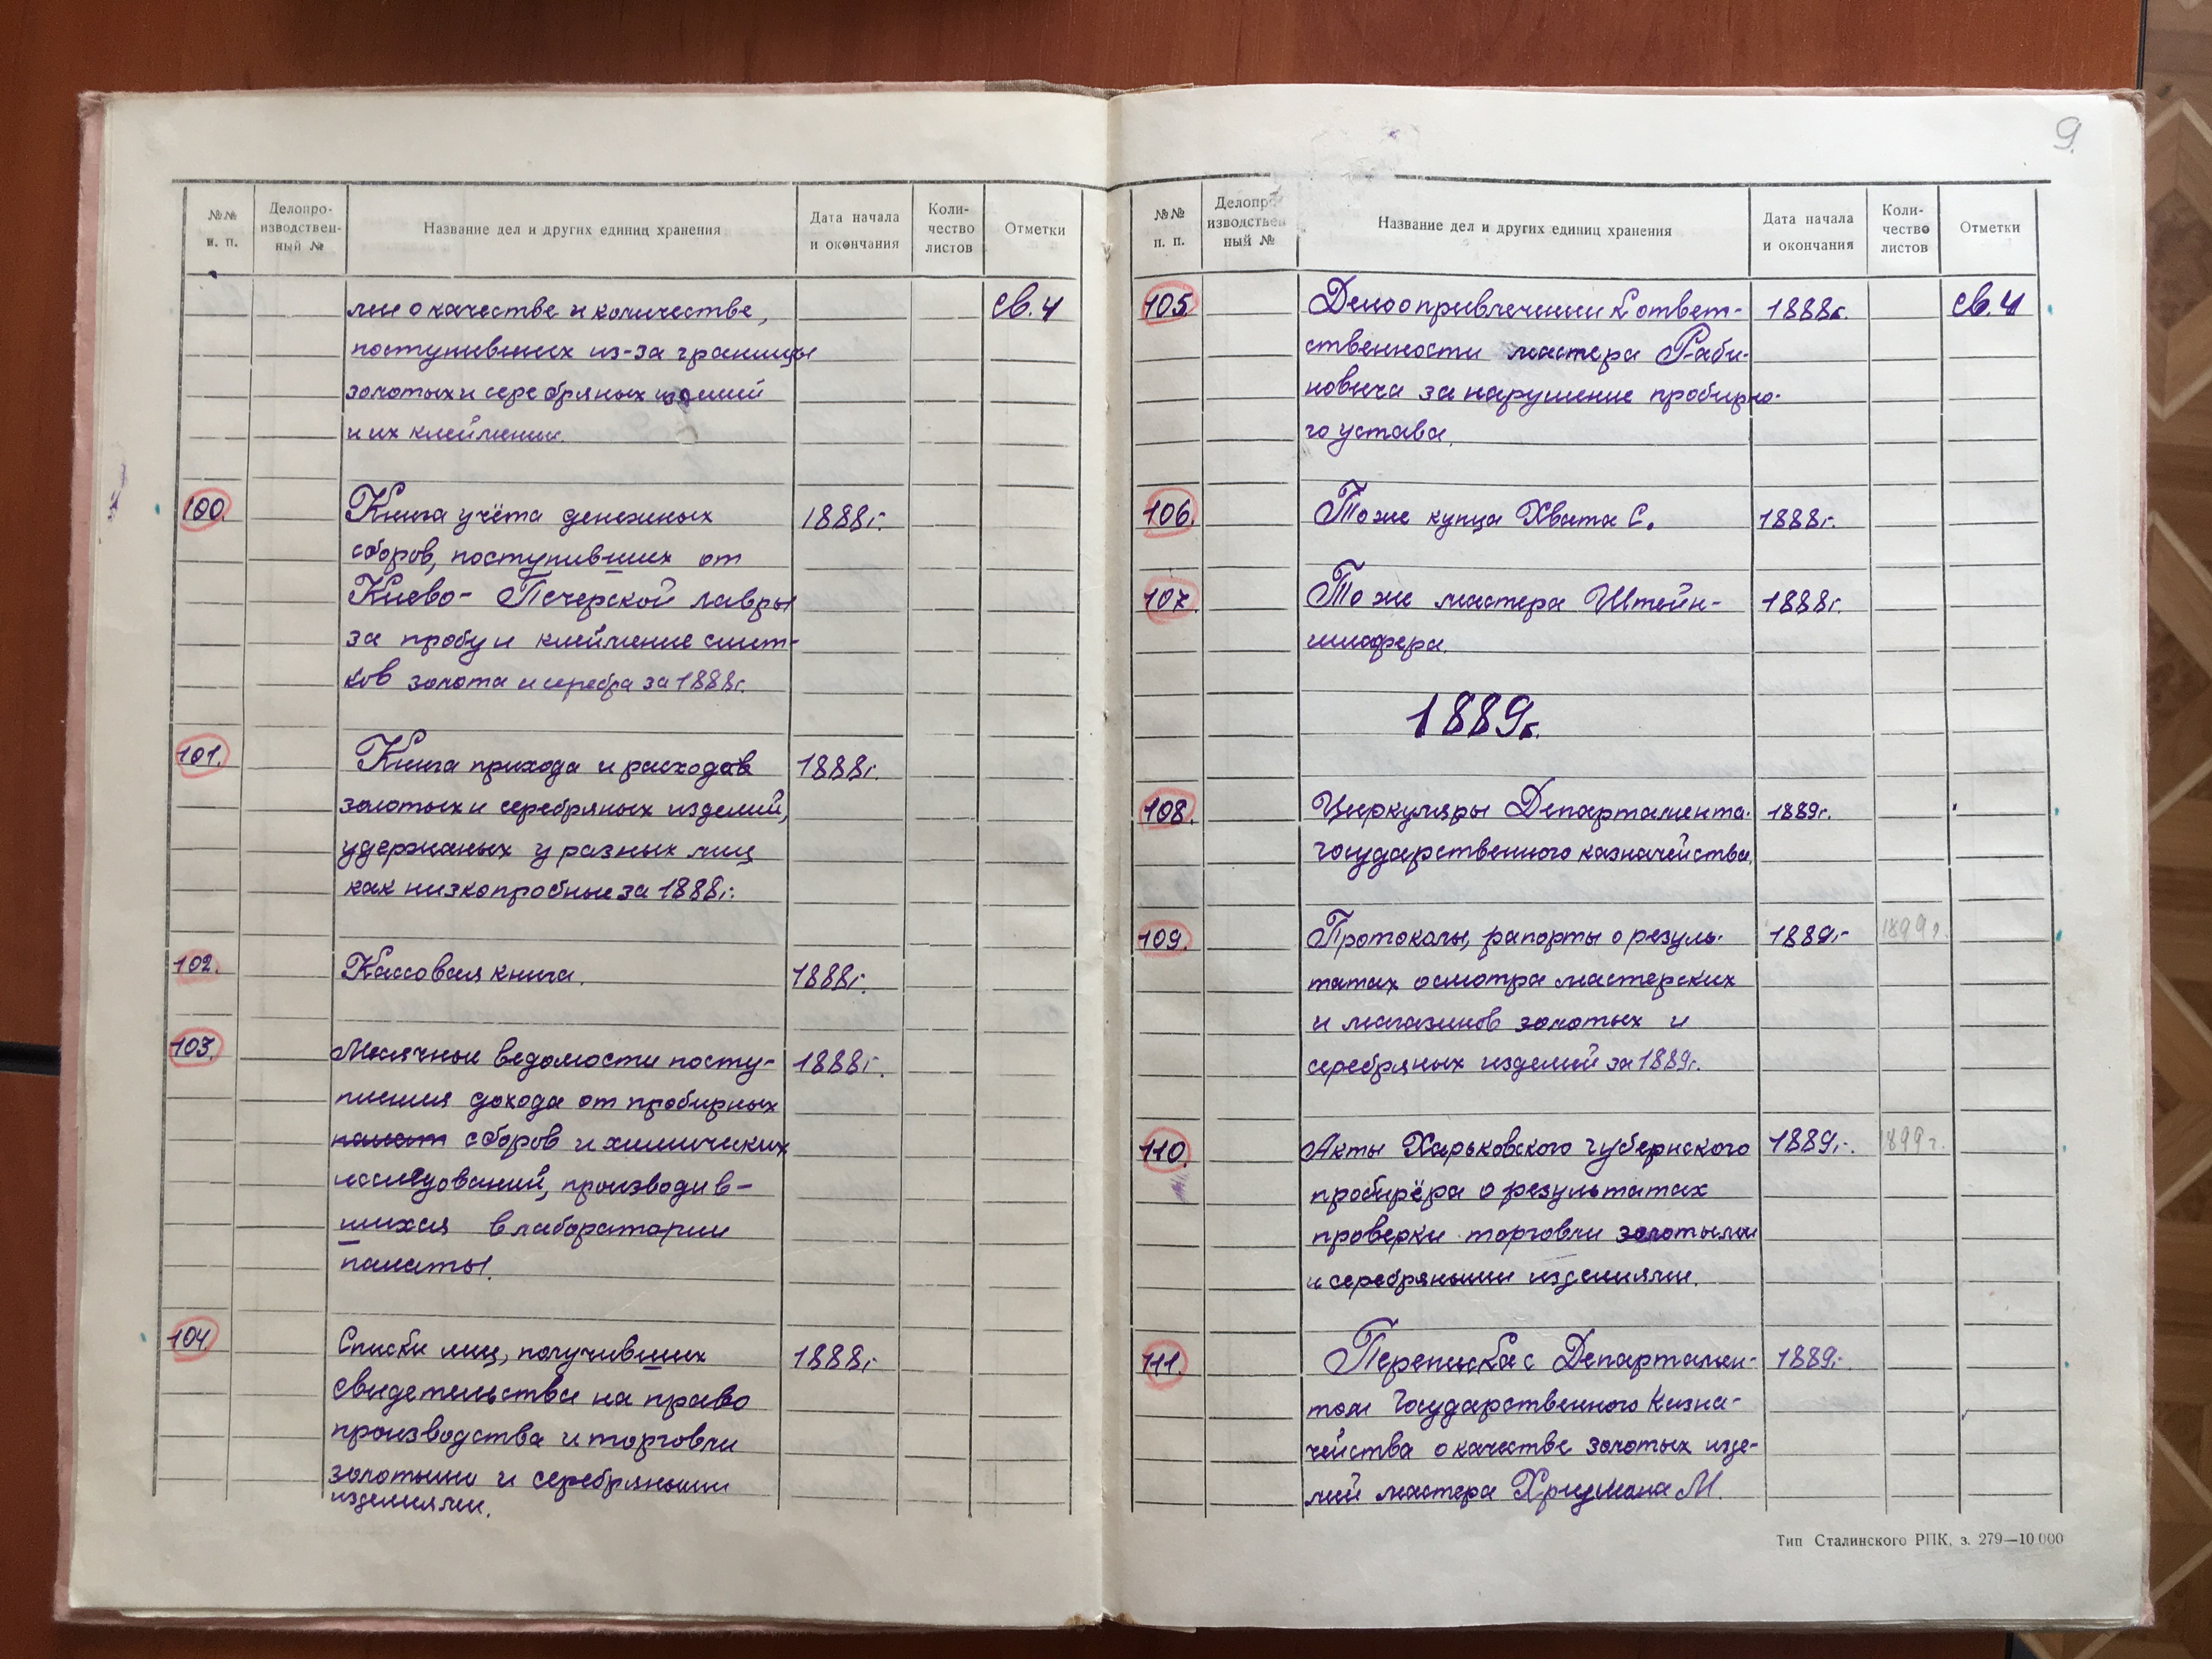 №№ п. п.
Делопро-
изводствен-
ный №
Название дел и других единиц хранения
Дата начала
и окончания
Коли-
чество
листов
Отметки
лие о качестве и количестве, св. 4
поступивших из-за границы
золотых и серебряных изделий
и их клеймении.
100. Книга учёта денежных 1888г.
сборов, поступивших от
Киево-Печерской лавры
за пробу и клеймение слит-
ков золота и серебра за 1888г.
101. Книга прихода и расходов 1888г.
золотых и серебряных изделий,
удержаных у разных лиц
как низкопробные за 1888г.
102. Кассовая книга. 1888г.
103. Месячные ведомости посту- 1888г.
пления дохода от пробирных
палат сборов и химических
исследований, производив-
шихся в лаборатории
палаты.
104. Списки лиц, получивших 1888г.
свидетельства на право
производства и торговли
золотыми и серебряными
изделиями.
9.
№№
п. п.
Делопро-
изводствен
ный №
Название дел и других единиц хранения
Дата начала
и окончания
Коли-
чество
листов
Отметки
105. Дело о привлечении к ответ- 1888г. св. 4
ственности мастера Раби-
новича за нарушение пробирно-
го устава.
106. То же купца Хвата С. 1888г.
107. То же мастера Штейн- 1888г.
шнафера.
1889г.
108. Циркуляры Департамента 1889г.
государственного казначейства.
109. Протоколы, рапорты о резуль- 1889г. 1899г.
татах осмотра мастерских
и магазинов золотых и
серебряных изделий за 1889г.
110. Акты Харьковского губернского 1889г. 1899г.
пробирёра о результатах
проверки торговли золотыми
и серебряными изделиями.
111. Переписка с Департамен- 1889г.
том Государственного Казна-
чейства о качестве золотых изде-
лий мастера М.
Тип Сталинского РПК, з. 279—10 000